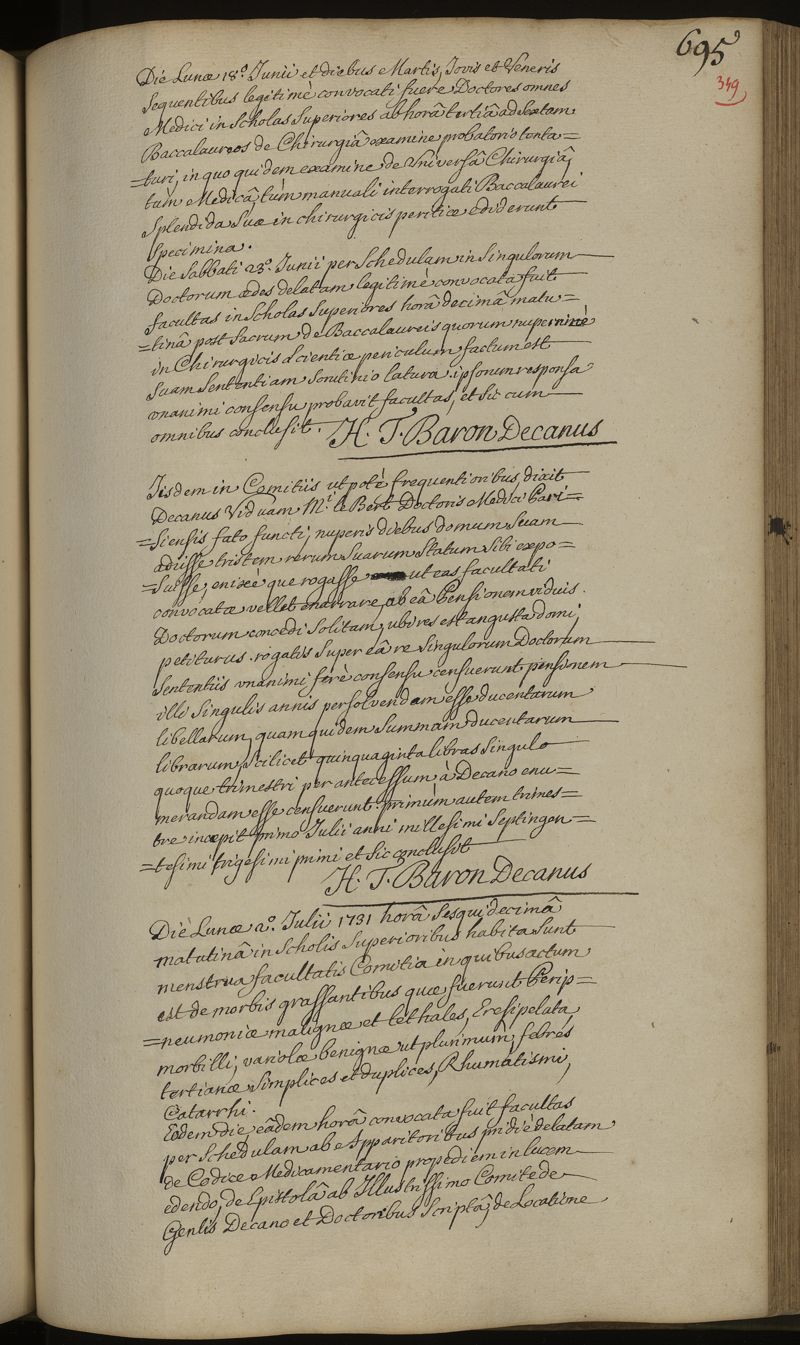 695
349
Die Lunæ 18.° Junii et diebus Martis, Jovis et Veneris
sequentibus legitimè convocati fuere Doctores omnes
Medici in Scholas Superiores ab horâ tertiâ ad sextam
Baccalaureos de Chirurgiâ examine probatorio tenta=
=turi, in quo quidem examine de Vniversâ Chirurgiâ,
tùm Medicâ, tùm manuali interrogati Baccalaurei
Splendida suæ in chirurgicis peritiæ ediderunt
Specimina.
Die Sabbati 23.° Junii per Schedulam in Singulorum
Doctorum ædes delatam legitimè convocata fuit
facultas in Scholas Superiores horâ decimâ matu=
=tinâ post Sacrum de Baccalaureis quorum nuperrimè
in Chirurgicis Scientiæ periculum factum est
Suam Sententiam Scrutinio latura. ipsorum responsa
vnanimi consensu probavit facultas, et Sic cum
omnibus conclusit. H. T. Baron Decanus
Iisdem in Comitiis utpotè frequentioribus, dixit
Decanus Viduam Mr. le Bert Doctoris Medici Pari=
=siensis fato functi, nuperis diebus domum Suam
adiisse tristem rerum Suarum Statum Sibi expo=
=suisse, enixè que rogasse ut eas facultati
convocatæ vellet enarrare, ab eâ Pensionem viduis
Doctorum concedi Solitam, ubi res est angusta domi,
petiturus. rogatis Super eâ re Singulorum Doctorum
Sententiis vnanimi ferè consensu censuerunt pensionem
illi Singulis annis persolvendam esse ducentarum
libellarum, quam quidem Summam ducentarum
librarum, Scilicet quinquaginta libras Singulo
quoque trimestri per antecessum à Decano enu=
merandam esse censuerunt. primùm autem trimes=
tre incæpit primo Julii anni millesimi Septingen=
=tesimi trigesimi primi et Sic conclusit
H. T. Baron Decanus
Die Lunæ 2.° Julii 1731 horâ Sesquidecimâ
matutinâ in Scholis Superioribus habita Sunt
menstrua facultatis Comitia in quibus actum
est de morbis grassantibus quæ fuerunt Perip=
=neumoniæ malignæ et lethales, Eresipelata,
morbilli, variolæ benignæ ut plurimum, febres
tertianæ Simplices et duplices, Rhumatismi,
Catarrhi.
Eodem die, eâdem horâ convocata fuit facultas
per Schedulam ab Apparitoribus pridiè delatam
de Codice Medicamentario propediem in lucem
edendo, de Epistolâ ab Illustrissimo Comite de
Genlis Decano et Doctoribus Scriptâ, de Locatione